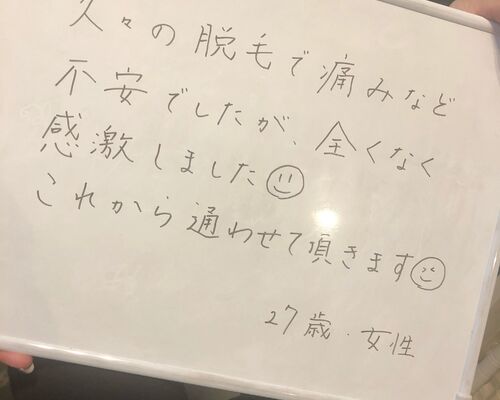 久々の脱毛で痛みなど
不安でしたが、全くなく
感激しました☺
これから通わせて頂きます☺
27歳・女性